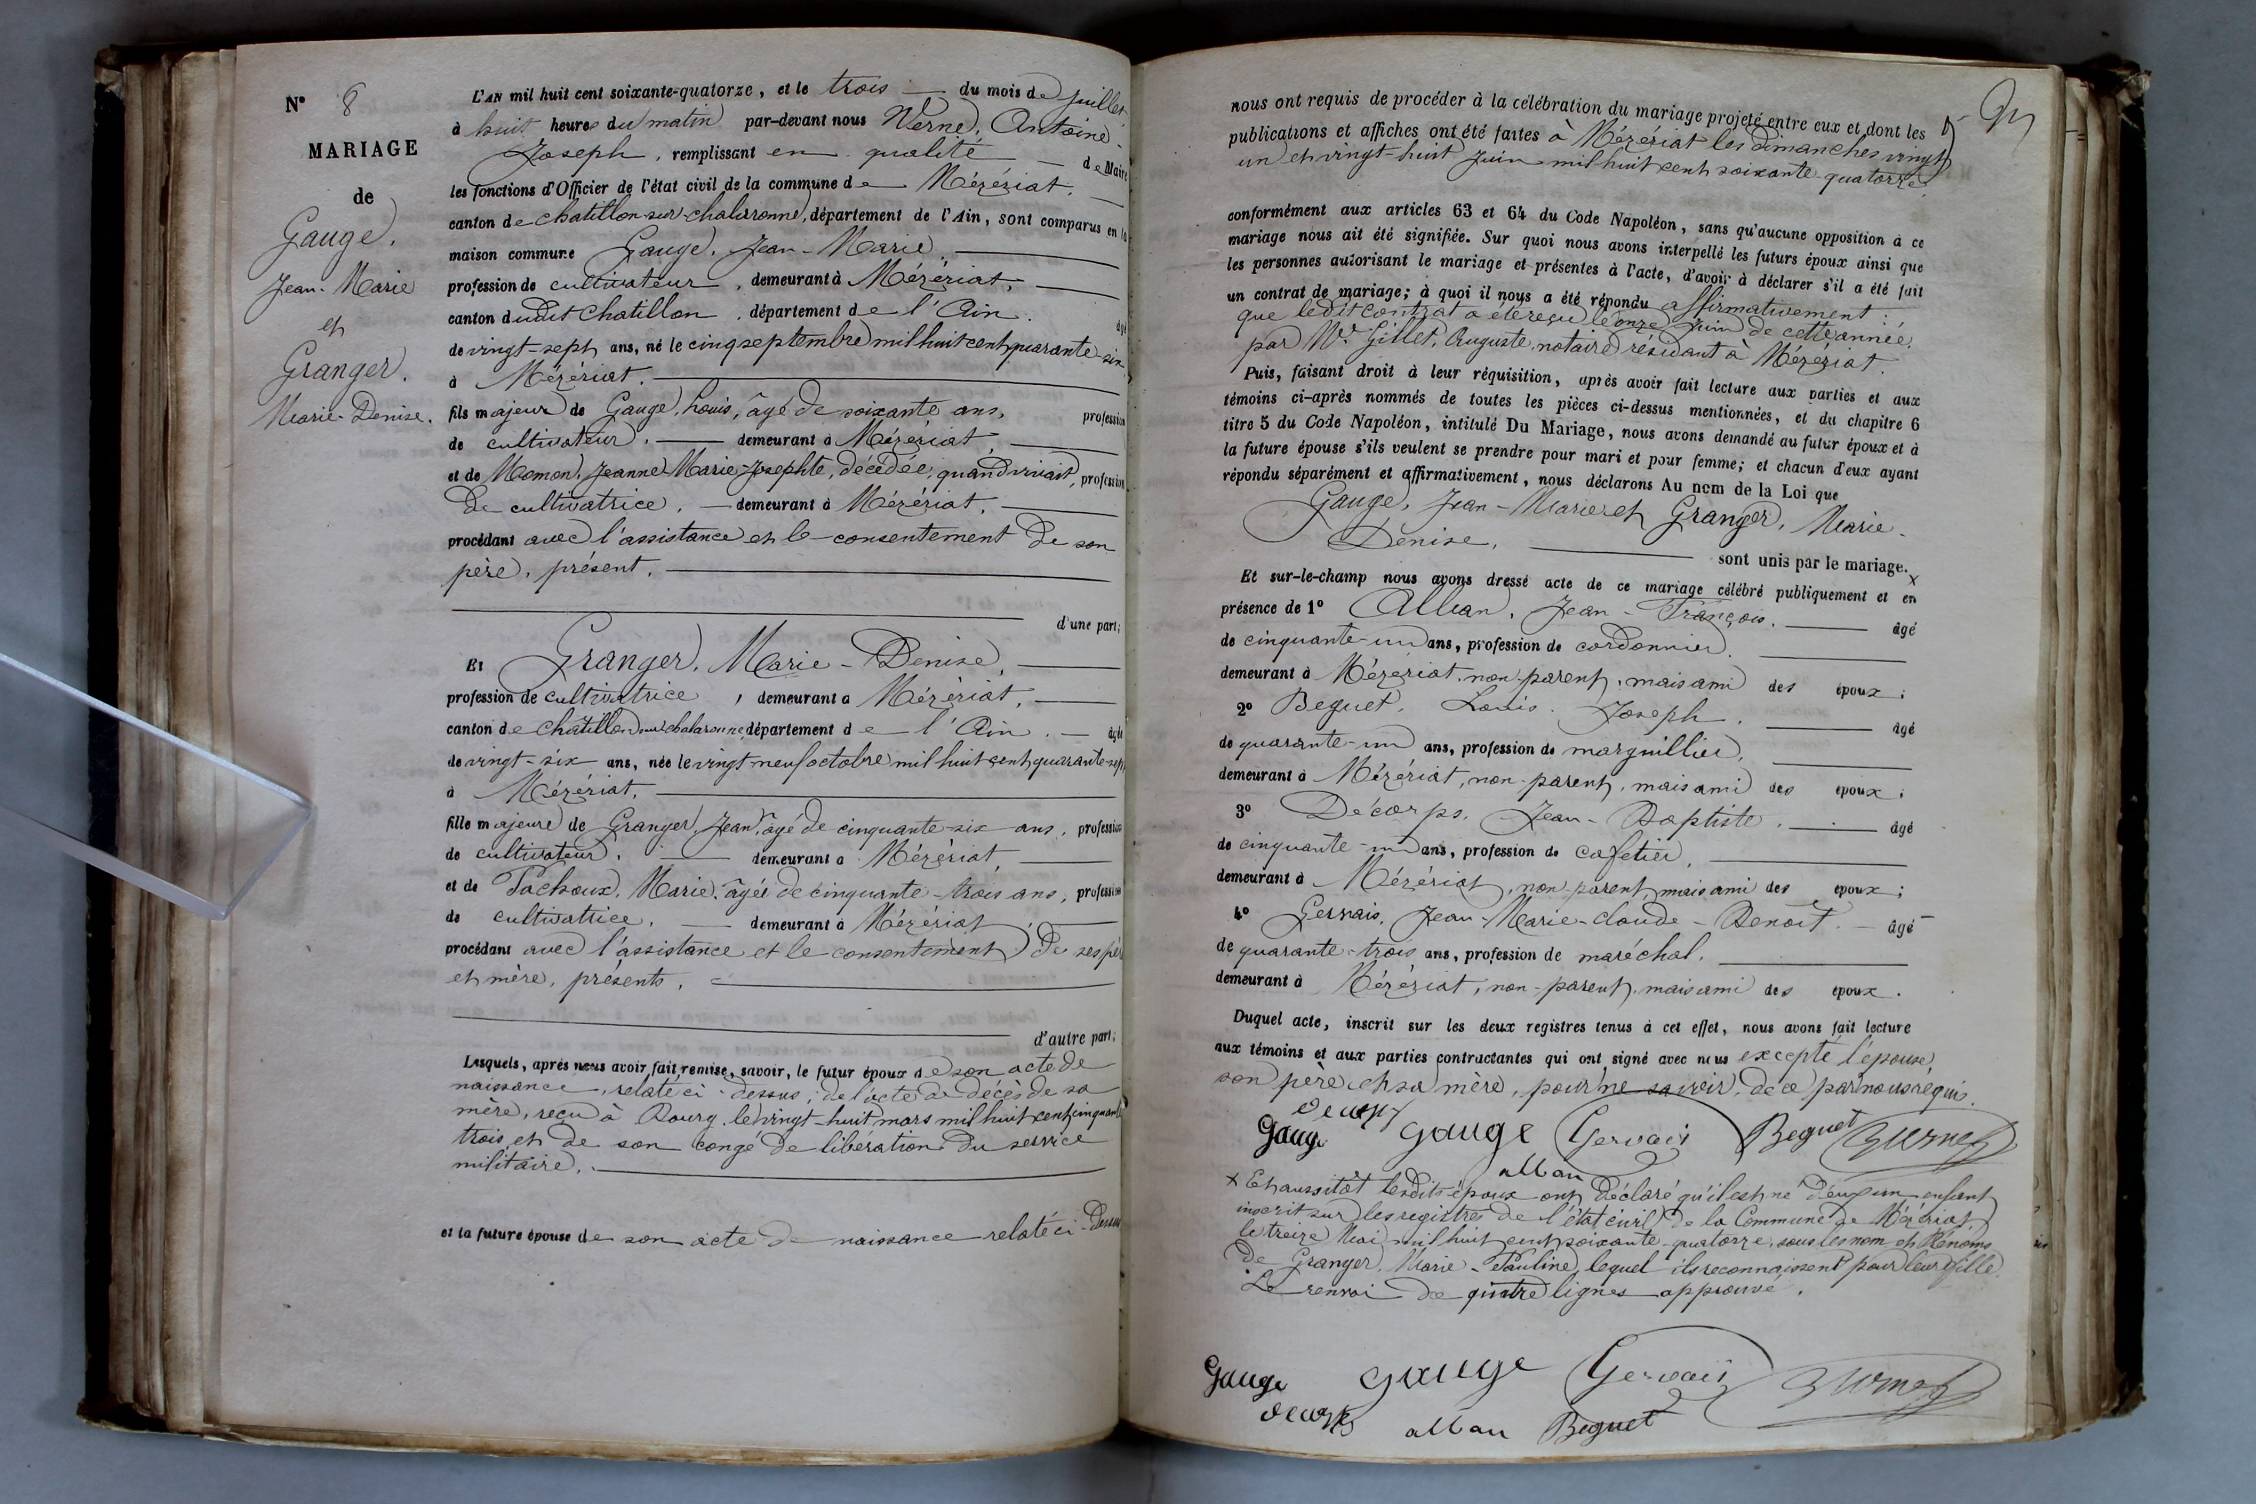 N° 8
MARIAGE
de
Gauge,
Jean-Marie
et
Granger,
Marie-Denise.
L'AN mil huit cent soixante-quatorze, et le trois du mois de juillet
à huit heures du matin par-devant nous Verne, Antoine-
Joseph, remplissant en qualité de Maire
les fonctions d'Officier de l'état civil de la commune de Mézériat,
canton de chatillon-sur-chalaronne, département de l'Ain, sont comparus en la
maison commune Gauge, Jean-Marie,
profession de cultivateur, demeurant à Mézériat,
canton dudit Chatillon, département de l'Ain. âgé
de vingt-sept ans, né le cinq septembre mil huit cent quarante-six
à Mézériat.
fils majeur de Gauge, Louis, âgé de soixante ans, profession
de cultivateur, demeurant à Mézériat,
et de Momon, Jeanne-Marie-Josephte, décédée, quand vivait, profession
de cultivatrice, demeurant à Mézériat,
procédant avec l'assistance et le consentement de son
père, présent,
d'une part;
Et Granger, Marie-Denise,
profession de cultivatrice, demeurant à Mézériat,
canton de chatillon sur chalaronne, département de l'Ain. âgée
de vingt-six ans, née le vingt-neuf octobre mil huit cent quarante-sept
à Mézériat,
fille majeure de Granger, Jean, âgé de cinquante-six ans, profession
de cultivateur, demeurant à Mézériat,
et de Pachoux, Marie, âgée de cinquante-trois ans, profession
de cultivatrice, demeurant à Mézériat,
procédant avec l'assistance et le consentement de ses père
et mère, présents,
d'autre part;
Lesquels, après nous avoir fait remise, savoir, le futur époux de son acte de
naissance, relaté ci-dessus; de l'acte de décès de sa
mère, reçu à Bourg, le vingt-huit mars mil huit cent cinquante
trois, et de son congé de libération du service
militaire,
et la future épouse de son acte de naissance relaté ci-dessus
nous ont requis de procéder à la célébration du mariage projeté entre eux et dont les
publications et affiches ont été faites à Mézériat les dimanches vingt
un et vingt-huit Juin mil huit cent soixante-quatorze,
conformément aux articles 63 et 64 du Code Napoléon, sans qu'aucune opposition à ce
mariage nous ait été signifiée. Sur quoi nous avons interpellé les futurs époux ainsi que
les personnes autorisant le mariage et présentes à l'acte, d'avoir à déclarer s'il a été fait
un contrat de mariage; à quoi il nous a été répondu affirmativement:
que ledit contrat a été reçu le onze Juin de cette année
par Me Gillet, Auguste, notaire résidant à Mézériat.
Puis, faisant droit à leur réquisition, après avoir fait lecture aux parties et aux
témoins ci-après nommés de toutes les pièces ci-dessus mentionnées, et du chapitre 6
titre 5 du Code Napoléon, intitulé Du Mariage, nous avons demandé au futur époux et à
la future épouse s'ils veulent se prendre pour mari et pour femme; et chacun d'eux ayant
répondu séparément et affirmativement, nous déclarons Au nom de la Loi que
Gauge, Jean-Marie et Granger, Marie-
Denise, sont unis par le mariage. x
Et sur-le-champ nous avons dressé acte de ce mariage célébré publiquement et en
présence de 1° Alban, Jean-François, âgé
de cinquante-un ans, profession de cordonnier,
demeurant à Mézériat, non-parent, mais ami des époux;
2° Beguet, Louis-Joseph, âgé
de quarante-un ans, profession de marguillier,
demeurant à Mézériat, non-parent, mais ami des époux;
3° Décorps, Jean-Baptiste, âgé
de cinquante-un ans, profession de cafetier,
demeurant à Mézériat, non-parent, mais ami des époux;
4° Gervais, Jean-Marie-Claude-Benoît. âgé
de quarante-trois ans, profession de maréchal,
demeurant à Mézériat, non-parent, mais ami des époux.
Duquel acte, inscrit sur les deux registres tenus à cet effet, nous avons fait lecture
aux témoins et aux parties contractantes qui ont signé avec nous excepté l'épouse,
son père et sa mère, pour ne savoir, de ce par nous requis.
Décorps
Gauge Gauge Gervais Beguet Verne
alban
x Et aussitôt lesdits époux ont déclaré qu'il est né d'eux un enfant
inscrit sur les registres de l'état civil de la Commune de Mézériat,
le treize Mai mil huit cent soixante-quatorze, sous les nom et Prénoms
de Granger, Marie-Pauline, lequel ils reconnaissent pour leur fille.
Le renvoi de quatre lignes approuvé.
Gauge Gauge Gervais Verne
Décorps alban Beguet